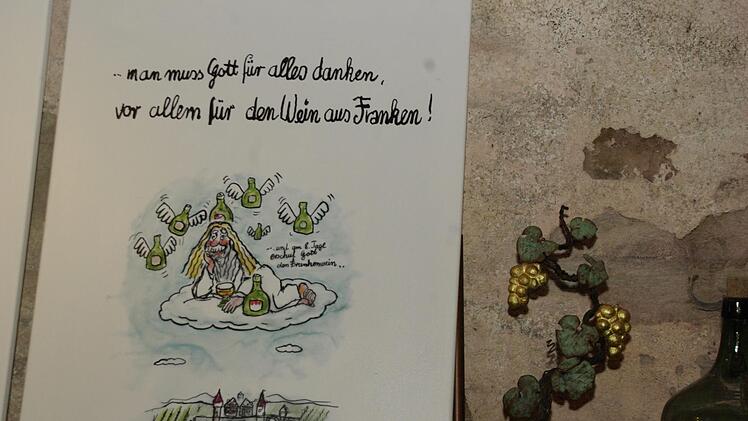 .. man muss Gott für alles danken,
vor allem für den Wein aus Franken!
... und am 8. Tage
erschuf Gott
den Frankenwein..